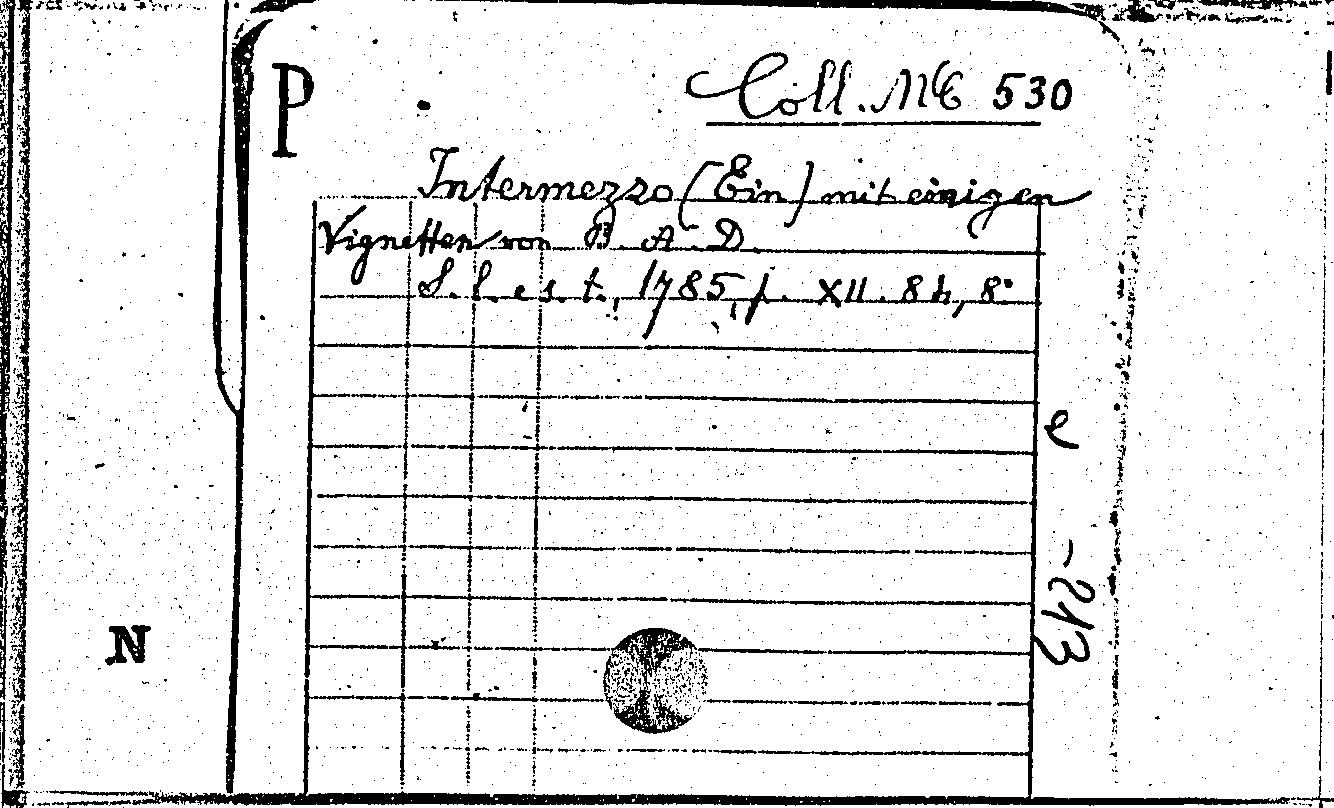 P
Coll. MC 530
Intermezzo (Ein) mit einigen
Vignetten von B. A. D.
S. l. e s. t., 1785, p. XII. 84, 8°
e -213
N